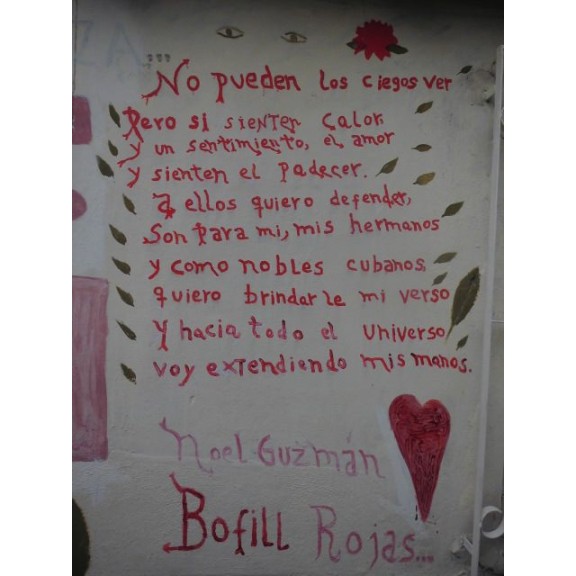 ZA...
No pueden los ciegos ver
Pero si sienten calor
y un sentimiento, el amor
y sienten el padecer.
a ellos quiero defender,
Son para mi, mis hermanos
y como nobles cubanos,
quiero brindarle mi verso
y hacia todo el universo
voy extendiendo mis manos.
Noel Guzmán
Bofill Rojas...